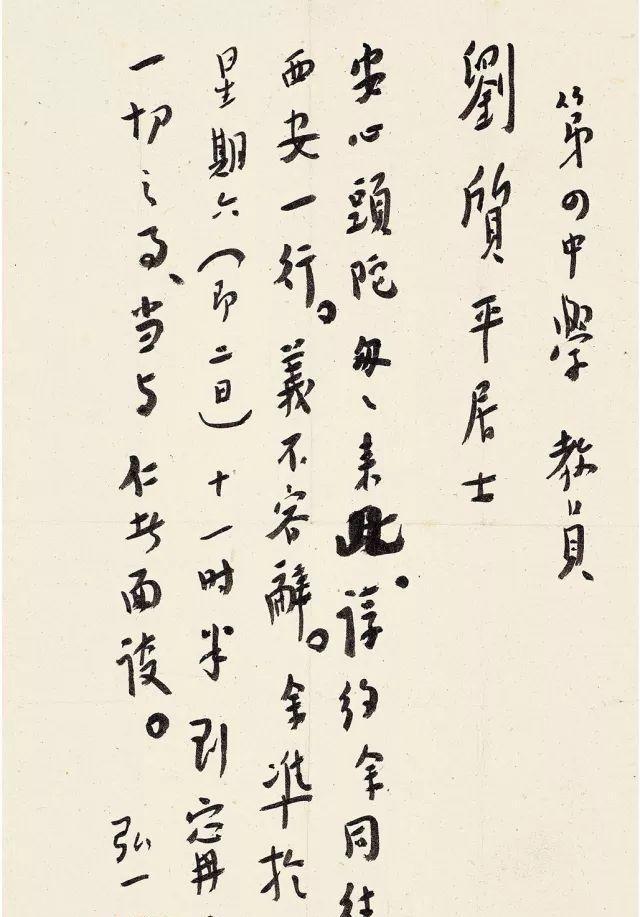 第四中學 教員
劉質平居士
安心頭陀匆々来此。諄約余同往
西安一行。義不容辭。余準於
星期六(即二日)十一时半到
一切之事、当与仁者面談。
弘一